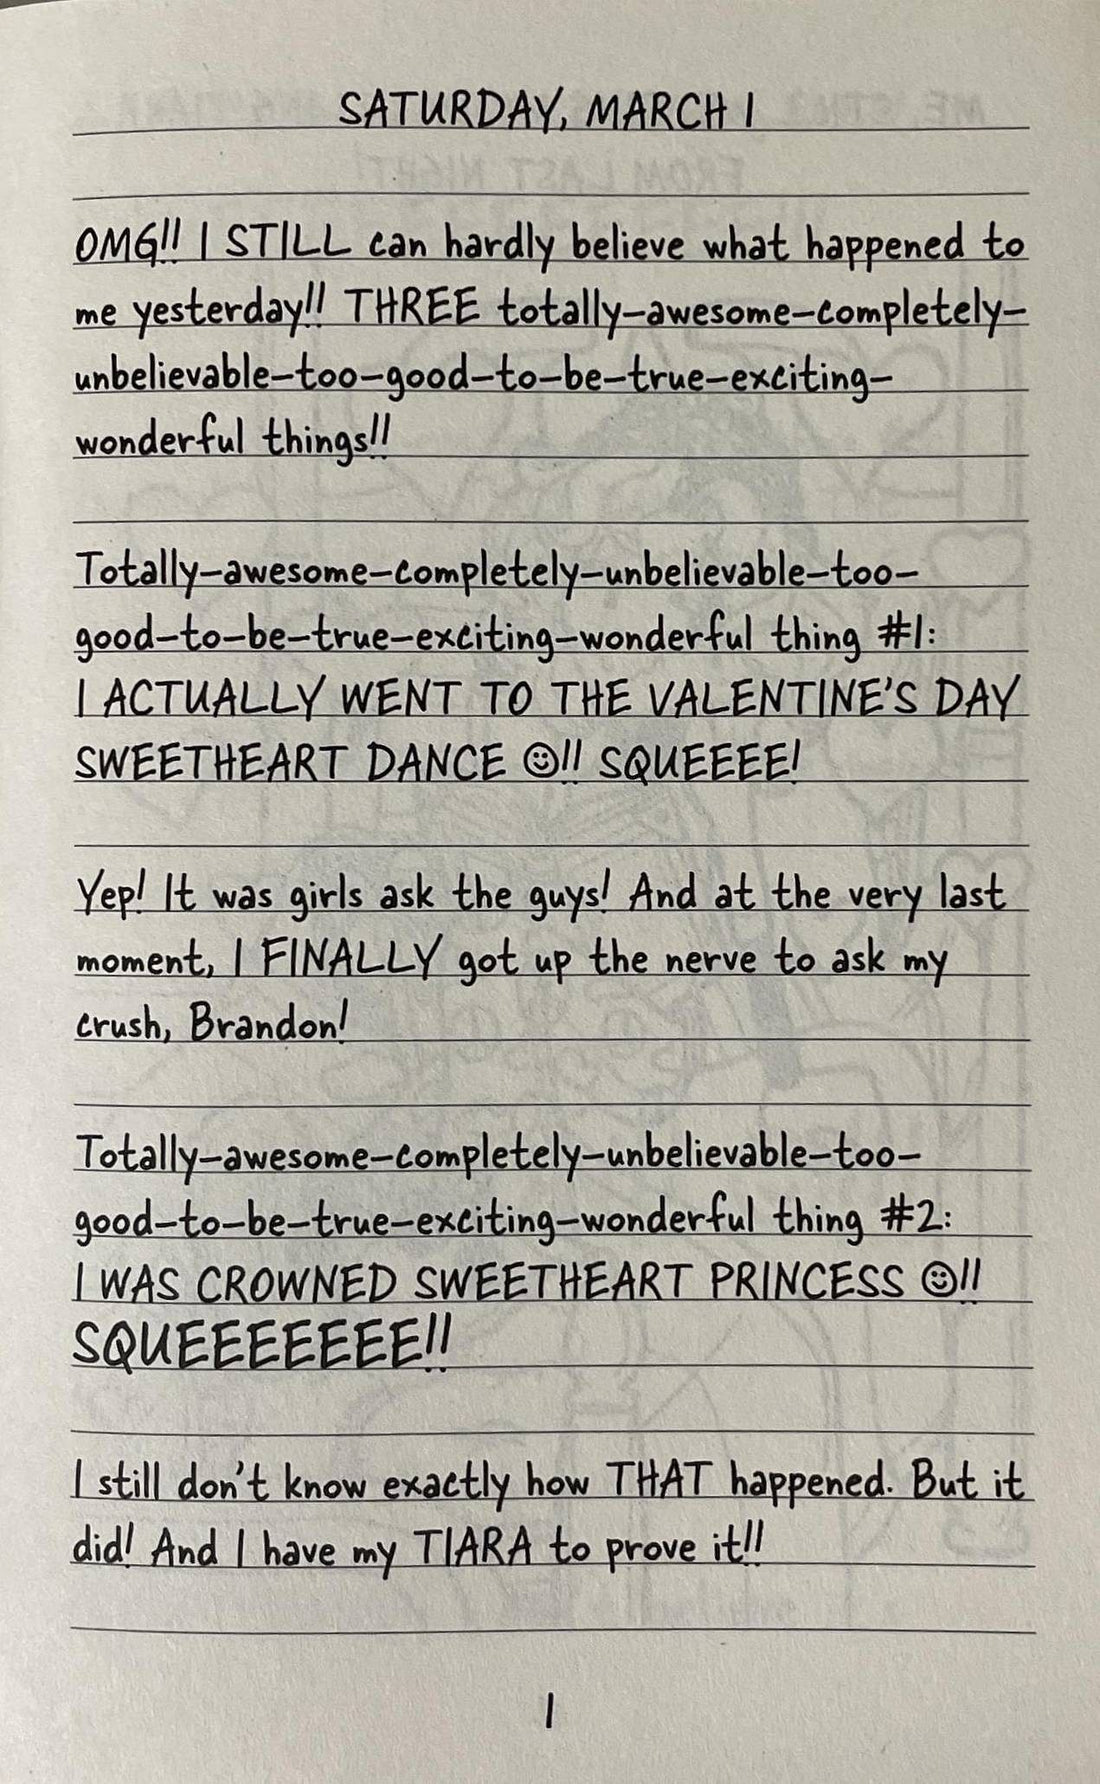 SATURDAY, MARCH 1
OMG!! I STILL can hardly believe what happened to
me yesterday!! THREE totally-awesome-completely-
unbelievable-too-good-to-be-true-exciting-
wonderful things!!
Totally-awesome-completely-unbelievable-too-
good-to-be-true-exciting-wonderful thing #1:
I ACTUALLY WENT TO THE VALENTINE'S DAY
SWEETHEART DANCE ☺!! SQUEEEE!
Yep! It was girls ask the guys! And at the very last
moment, I FINALLY got up the nerve to ask my
crush, Brandon!
Totally-awesome-completely-unbelievable-too-
good-to-be-true-exciting-wonderful thing #2:
I WAS CROWNED SWEETHEART PRINCESS ☺!!
SQUEEEEEEEE!!
I still don't know exactly how THAT happened. But it
did! And I have my TIARA to prove it!!
1